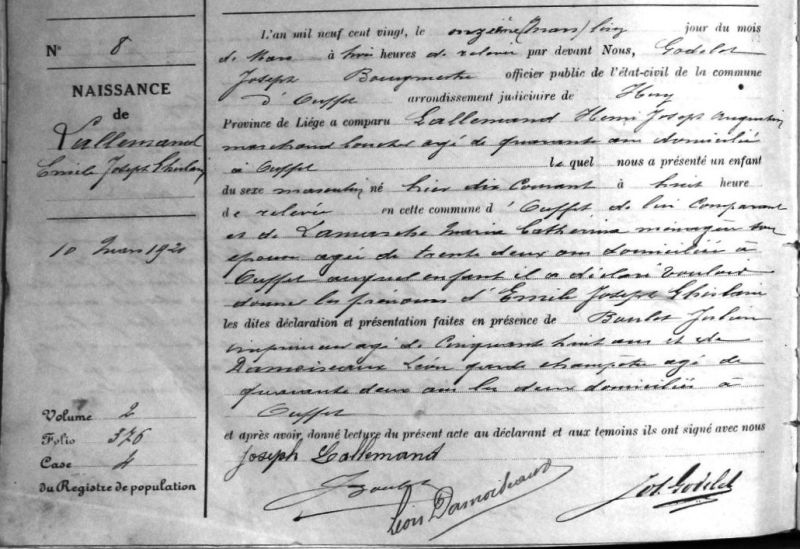 N° 8
NAISSANCE
de
Lallemand
Emile Joseph Ghislain
10 Mars 1920
Volume 2
Folio 376
Case 4
du Registre de population
L'an mil neuf cent vingt, le onzième jour du mois
de Mars à huit heures de relevée par devant Nous, Godelet
Joseph Bourgmestre officier public de l'état-civil de la commune
d'Ouffet arrondissement judiciaire de Huy
Province de Liége a comparu Lallemand Henri Joseph Augustin
marchand boucher agé de quarante ans domicilié
à Ouffet lequel nous a présenté un enfant
du sexe masculin né hier dix Courant à huit heure
de relevée en cette commune d'Ouffet de lui Comparant
et de Lamarche Maria Catherina ménagère son
épouse agée de trente deux ans domiciliée à
Ouffet auquel enfant il a déclaré vouloir
donner les prénoms d'Emile Joseph Ghislain
les dites déclaration et présentation faites en présence de Boulet Julien
imprimeur agé de Cinquante huit ans et de
Damoiseaux Léon garde champêtre agé de
quarante deux ans les deux domiciliés à
Ouffet
et après avoir donné lecture du présent acte au déclarant et aux temoins ils ont signé avec nous
Joseph Lallemand
J Boulet
Léon Damoiseaux
Jos. Godelet